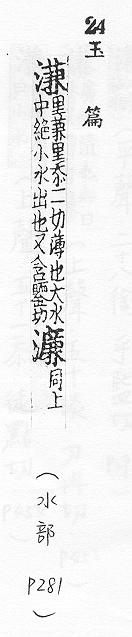 24 玉篇
溓 里兼里忝二切薄也大水
中絕小水出也又含鑒切 濂 同上
(水部 P281)